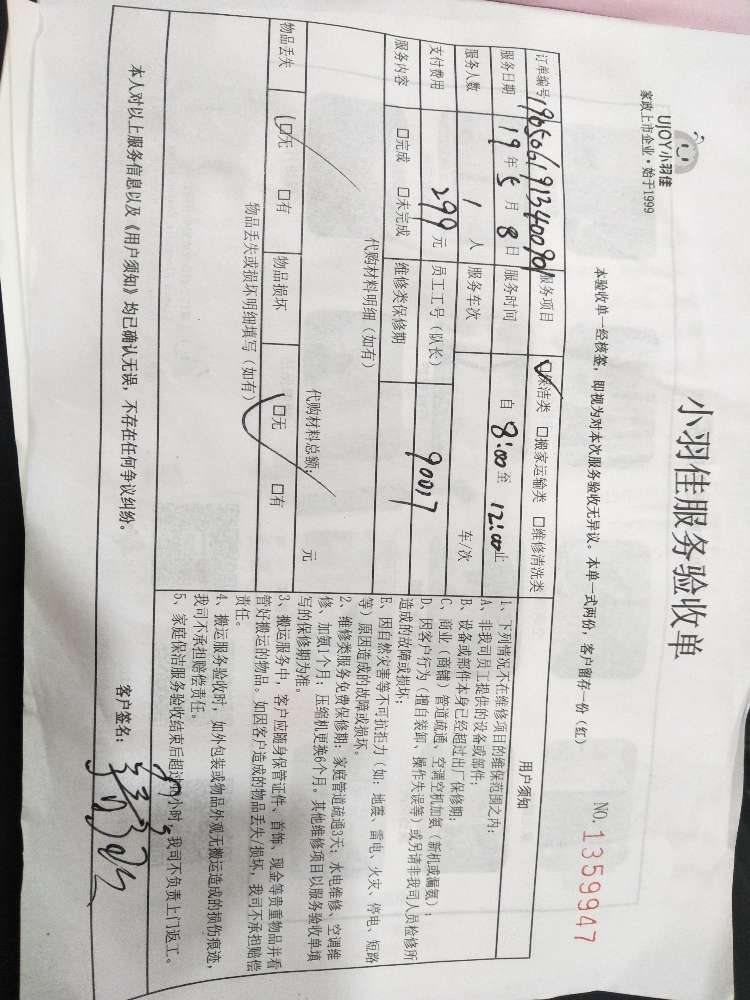 UjOY小羽佳
家政上市企业·始于1999
小羽佳服务验收单
NO. 1359947
本验收单一经核签，即视为对本次服务验收无异议。本单一式两份，客户留存一份（红）
订单编号 服务项目 ☑保洁类 □搬家运输类 □维修清洗类
服务日期 19年5月8日 服务时间 自 8:00 至 12:00 止
服务人数 1 人 服务车次 车/次
支付费用 299 元 员工工号（队长） 90017
服务内容 □完成 □未完成 维修类保修期
代购材料明细（如有）
代购材料总额： 元
物品丢失 ☑无 □有 物品损坏 ☑无 □有
物品丢失或损坏明细填写（如有）
用户须知
1、下列情况不在维修项目的维保范围之内：
A、非我司员工提供的设备或部件；
B、设备或部件本身已经超过出厂保修期；
C、商业（商铺）管道疏通、空调空机加氨（新机或漏氨）；
D、因客户行为（擅自装卸、操作失误等）或另请非我司人员检修所
造成的故障或损坏；
E、因自然灾害等不可抗拒力（如：地震、雷电、火灾、停电、短路
等）原因造成的故障或损坏。
2、维修类服务免费保修期：家庭管道疏通3天；水电维修、空调维
修、加氨1个月；压缩机更换6个月。其他维修项目以服务验收单填
写的保修期为准。
3、搬运服务中，客户应随身保管证件、首饰、现金等贵重物品并看
管好搬运的物品。如因客户造成的物品丢失/损坏，我司不承担赔偿
责任。
4、搬运服务验收时，如外包装或物品外观无搬运造成的损伤痕迹，
我司不承担赔偿责任。
5、家庭保洁服务验收结束后超过小时，我司不负责上门返工。
本人对以上服务信息以及《用户须知》均已确认无误，不存在任何争议纠纷。
客户签名：